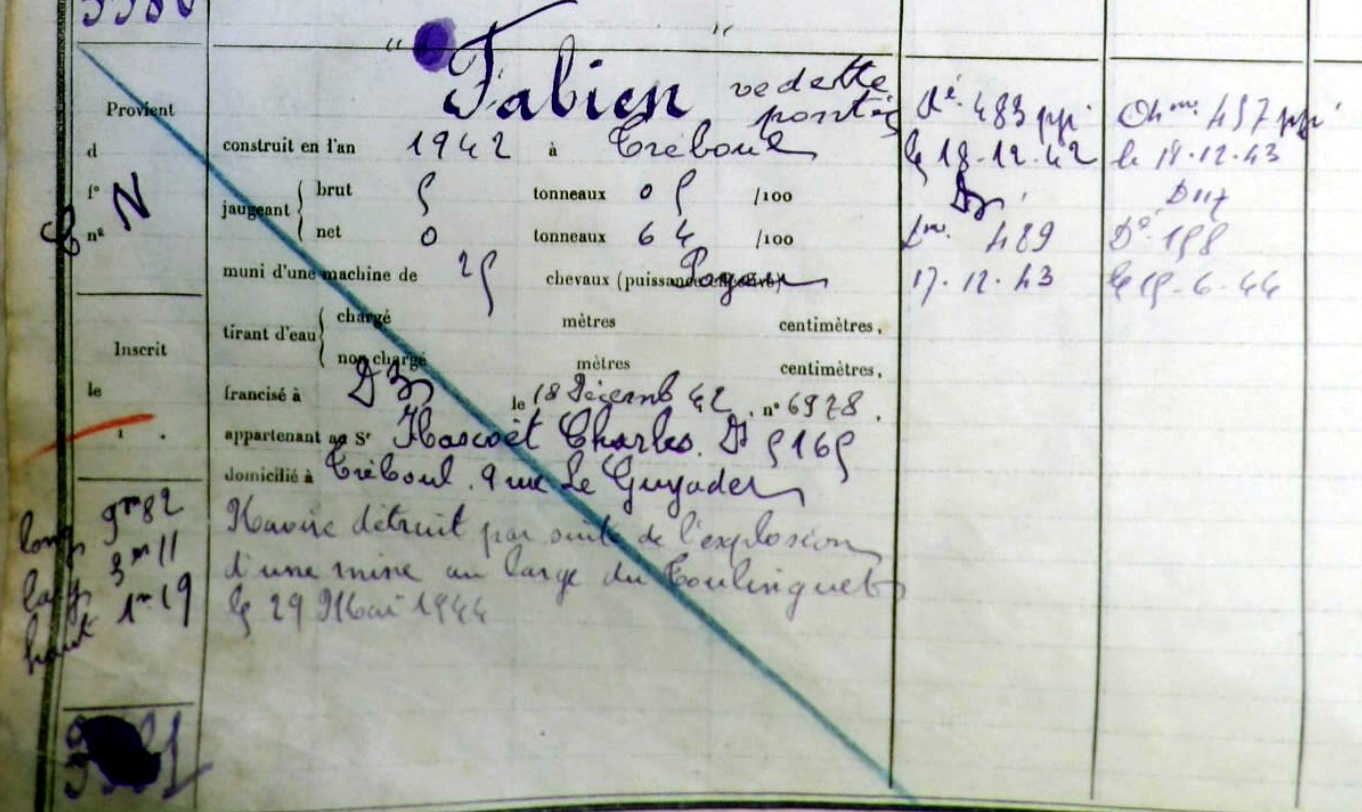 5380
" Fabien " vedette
pontée
Provient
d
f°
N
n°
construit en l'an 1942 à Tréboul
jaugeant brut 5 tonneaux 05 /100
net 0 tonneaux 64 /100
muni d'une machine de 25 chevaux (puissance
tirant d'eau chargé mètres centimètres,
non chargé mètres centimètres,
Inscrit
le
1 .
francisé à DZ le 18 Décemb 42, n° 6928.
appartenant au Sr Hascoët Charles. DZ 5165
domicilié à Tréboul. 9 rue Le Guyader
Navire détruit par suite de l'explosion
d'une mine au large du Toulinguet
le 29 Mai 1944
long 9m82
larg 3m11
haut 1m19
483
le 18-12-42
DZ
489
17-12-43
457
le 18-12-43
D° 158
le 15-6-44